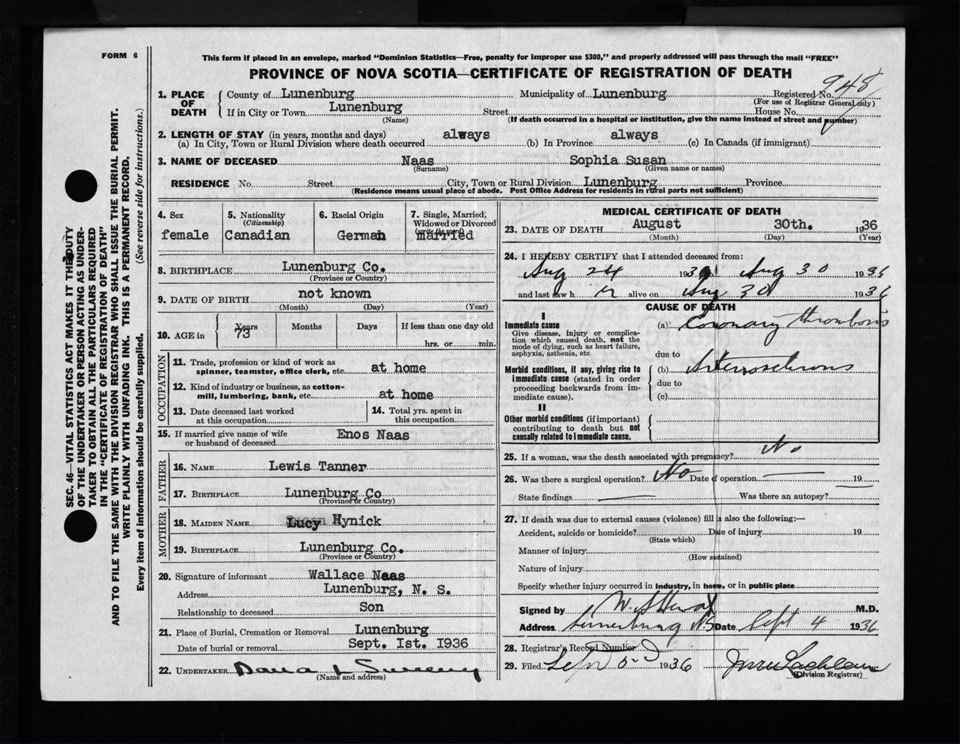 FORM 6
This form if placed in an envelope, marked "Dominion Statistics—Free, penalty for improper use $300," and properly addressed will pass through the mail "FREE"
PROVINCE OF NOVA SCOTIA—CERTIFICATE OF REGISTRATION OF DEATH
948
1. PLACE OF DEATH
County of Lunenburg Municipality of Lunenburg Registered No.
(For use of Registrar General only)
If in City or Town Lunenburg Street House No.
(Name) (If death occurred in a hospital or institution, give the name instead of street and number)
2. LENGTH OF STAY (in years, months and days)
(a) In City, Town or Rural Division where death occurred always (b) In Province always (c) In Canada (if immigrant)
3. NAME OF DECEASED Naas Sophia Susan
(Surname) (Given name or names)
RESIDENCE No. Street City, Town or Rural Division Lunenburg Province
(Residence means usual place of abode. Post Office Address for residents in rural parts not sufficient)
4. Sex female
5. Nationality (Citizenship) Canadian
6. Racial Origin German
7. Single, Married, Widowed or Divorced (write the word) married
8. BIRTHPLACE Lunenburg Co.
(Province or Country)
9. DATE OF BIRTH not known
(Month) (Day) (Year)
10. AGE in Years 73 Months Days If less than one day old
hrs. or min.
OCCUPATION
11. Trade, profession or kind of work as spinner, teamster, office clerk, etc. at home
12. Kind of industry or business, as cotton-mill, lumbering, bank, etc. at home
13. Date deceased last worked at this occupation
14. Total yrs. spent in this occupation
15. If married give name of wife or husband of deceased Enos Naas
FATHER
16. NAME Lewis Tanner
17. BIRTHPLACE Lunenburg Co
(Province or Country)
MOTHER
18. MAIDEN NAME Lucy Hynick
19. BIRTHPLACE Lunenburg Co.
(Province or Country)
20. Signature of informant Wallace Naas
Address Lunenburg, N. S.
Relationship to deceased Son
21. Place of Burial, Cremation or Removal Lunenburg
Date of burial or removal Sept. 1st. 1936
22. UNDERTAKER Dana L Sweeny
(Name and address)
MEDICAL CERTIFICATE OF DEATH
23. DATE OF DEATH August 30th. 1936
(Month) (Day) (Year)
24. I HEREBY CERTIFY that I attended deceased from:
Aug 24 193 Aug 30 1936
and last saw h er alive on Aug 30 1936
CAUSE OF DEATH
I
Immediate cause
Give disease, injury or complication which caused death, not the mode of dying, such as heart failure, asphyxia, asthenia, etc.
(a) Coronary thrombosis
due to
Morbid conditions, if any, giving rise to immediate cause (stated in order proceeding backwards from immediate cause).
(b) Arteriosclerosis
due to
(c)
II
Other morbid conditions (if important) contributing to death but not causally related to immediate cause.
25. If a woman, was the death associated with pregnancy? No
26. Was there a surgical operation? No Date of operation 19
State findings Was there an autopsy?
27. If death was due to external causes (violence) fill is also the following:—
Accident, suicide or homicide? Date of injury 19
(State which)
Manner of injury
(How sustained)
Nature of injury
Specify whether injury occurred in industry, in home, or in public place
Signed by M.D.
Address Lunenburg NS Date Sept 4 1936
28. Registrar's Record Number
29. Filed 1936
(Division Registrar)
SEC. 46—VITAL STATISTICS ACT MAKES IT THE DUTY
OF THE UNDERTAKER OR PERSON ACTING AS UNDER-
TAKER TO OBTAIN ALL THE PARTICULARS REQUIRED
IN THE "CERTIFICATE OF REGISTRATION OF DEATH"
AND TO FILE THE SAME WITH THE DIVISION REGISTRAR WHO SHALL ISSUE THE BURIAL PERMIT.
WRITE PLAINLY WITH UNFADING INK. THIS IS A PERMANENT RECORD.
Every item of information should be carefully supplied. (See reverse side for instructions.)